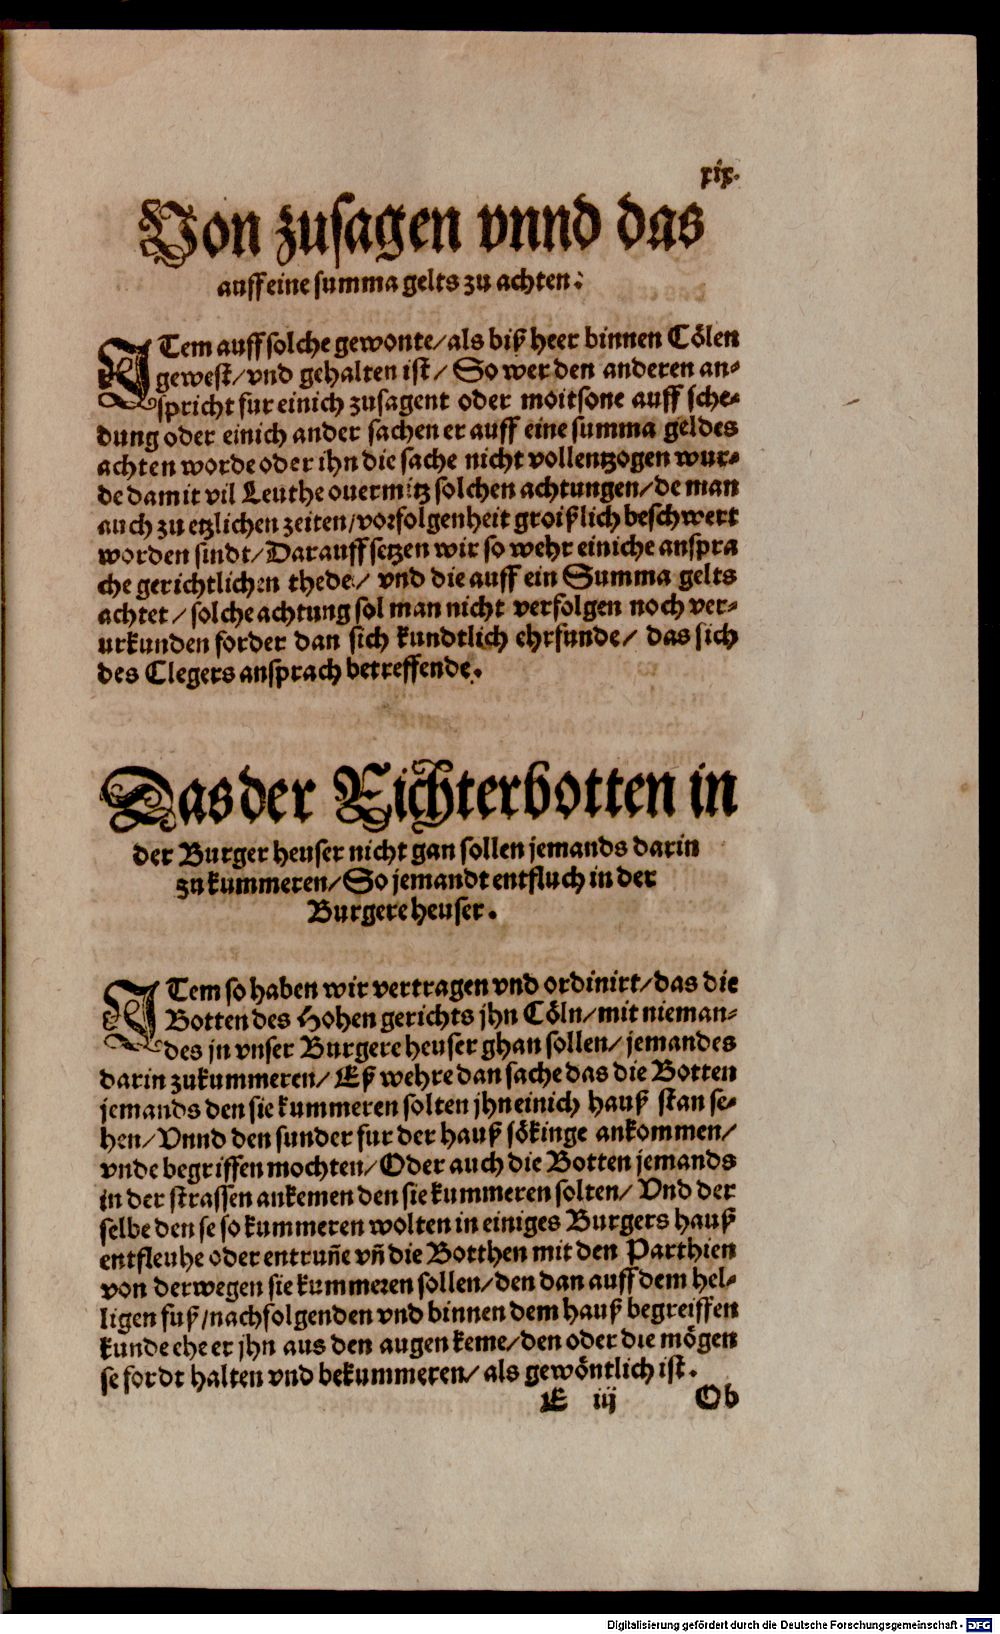 xix.
Von zusagen vnnd das
auff eine summa gelts zu achten:
ITem auff solche gewonte/ als biß heer binnen Cölen
gewest/ vnd gehalten ist/ So wer den anderen an-
spricht fur einich zusagent oder moitsone auff sche-
dung oder einich ander sachen er auff eine summa geldes
achten worde oder ihn die sache nicht vollentzogen wur-
de damit vil Leuthe ouermitz solchen achtungen/ de man
auch zu etzlichen zeiten/ vorfolgenheit groißlich beschwert
worden sindt/ Darauff setzen wir so wehr einiche anspra
che gerichtlichen thede/ vnd die auff ein Summa gelts
achtet/ solche achtung sol man nicht verfolgen noch ver-
urkunden forder dan sich kundtlich ehrfunde/ das sich
des Clegers ansprach betreffende.
Das der Richterbotten in
der Burger heuser nicht gan sollen jemands darin
zu kummeren/ So jemandt entfluch in der
Burgere heuser.
ITem so haben wir vertragen vnd ordinirt/ das die
Botten des Hohen gerichts jhn Cöln/ mit nieman-
des jn vnser Burgere heuser ghan sollen/ jemandes
darin zukummeren/ Eß wehre dan sache das die Botten
jemands den sie kummeren solten jhn einich hauß stan se-
hen/ Vnnd den sunder fur der hauß sökinge ankommen/
vnde begriffen mochten/ Oder auch die Botten jemands
in der strassen ankemen den sie kummeren solten/ Vnd der
selbe den se so kummeren wolten in einiges Burgers hauß
entfleuhe oder entruñe vñ die Botthen mit den Parthien
von derwegen sie kummeren sollen/ den dan auff dem hel-
ligen fuß/ nachfolgenden vnd binnen dem hauß begreiffen
kunde ehe er jhn aus den augen keme/ den oder die mögen
se fordt halten vnd bekummeren/ als gewöntlich ist.
E iij Ob
Digitalisierung gefördert durch die Deutsche Forschungsgemeinschaft - DFG